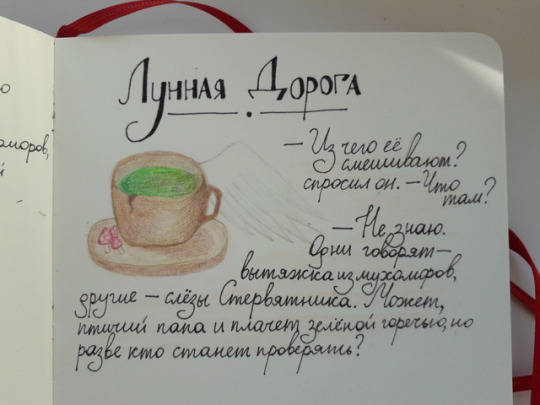 о
аморов,
й
Лунная Дорога
— Из чего её
смешивают?
спросил он. — Что
там?
— Не знаю.
Одни говорят —
вытяжка из мухоморов,
другие — слёзы Стервятника. Может,
птичий папа и плачет зелёной горечью, но
разве кто станет проверять?